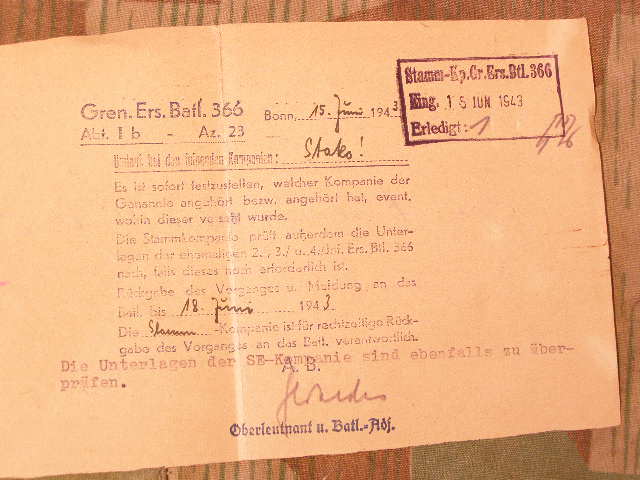 Gren. Ers. Batl. 366
Bonn, 15. Juni 1943
Stamm-Kp.Gr.Ers.Btl.366
Eing. 15 JUN 1943
Erledigt: 1
Abt. I b - Az. 23
Umlauf bei den folgenden Kompanien: Stako!
Es ist sofort festzustellen, welcher Kompanie der
Genannte angehört bezw. angehört hat, event.
wohin dieser versetzt wurde.
Die Stammkompanie prüft außerdem die Unter-
lagen der ehemaligen 2., 3./ u. 4./Inf. Ers. Btl. 366
nach, falls dieses noch erforderlich ist.
Rückgabe des Vorganges u. Meldung an das
Batl. bis 18. Juni 1943.
Die Stamm-Kompanie ist für rechtzeitige Rück-
gabe des Vorganges an das Batl. verantwortlich.
Die Unterlagen der SE-Kompanie sind ebenfalls zu über-
prüfen.
A. B.
Oberleutnant u. Batl.-Adj.